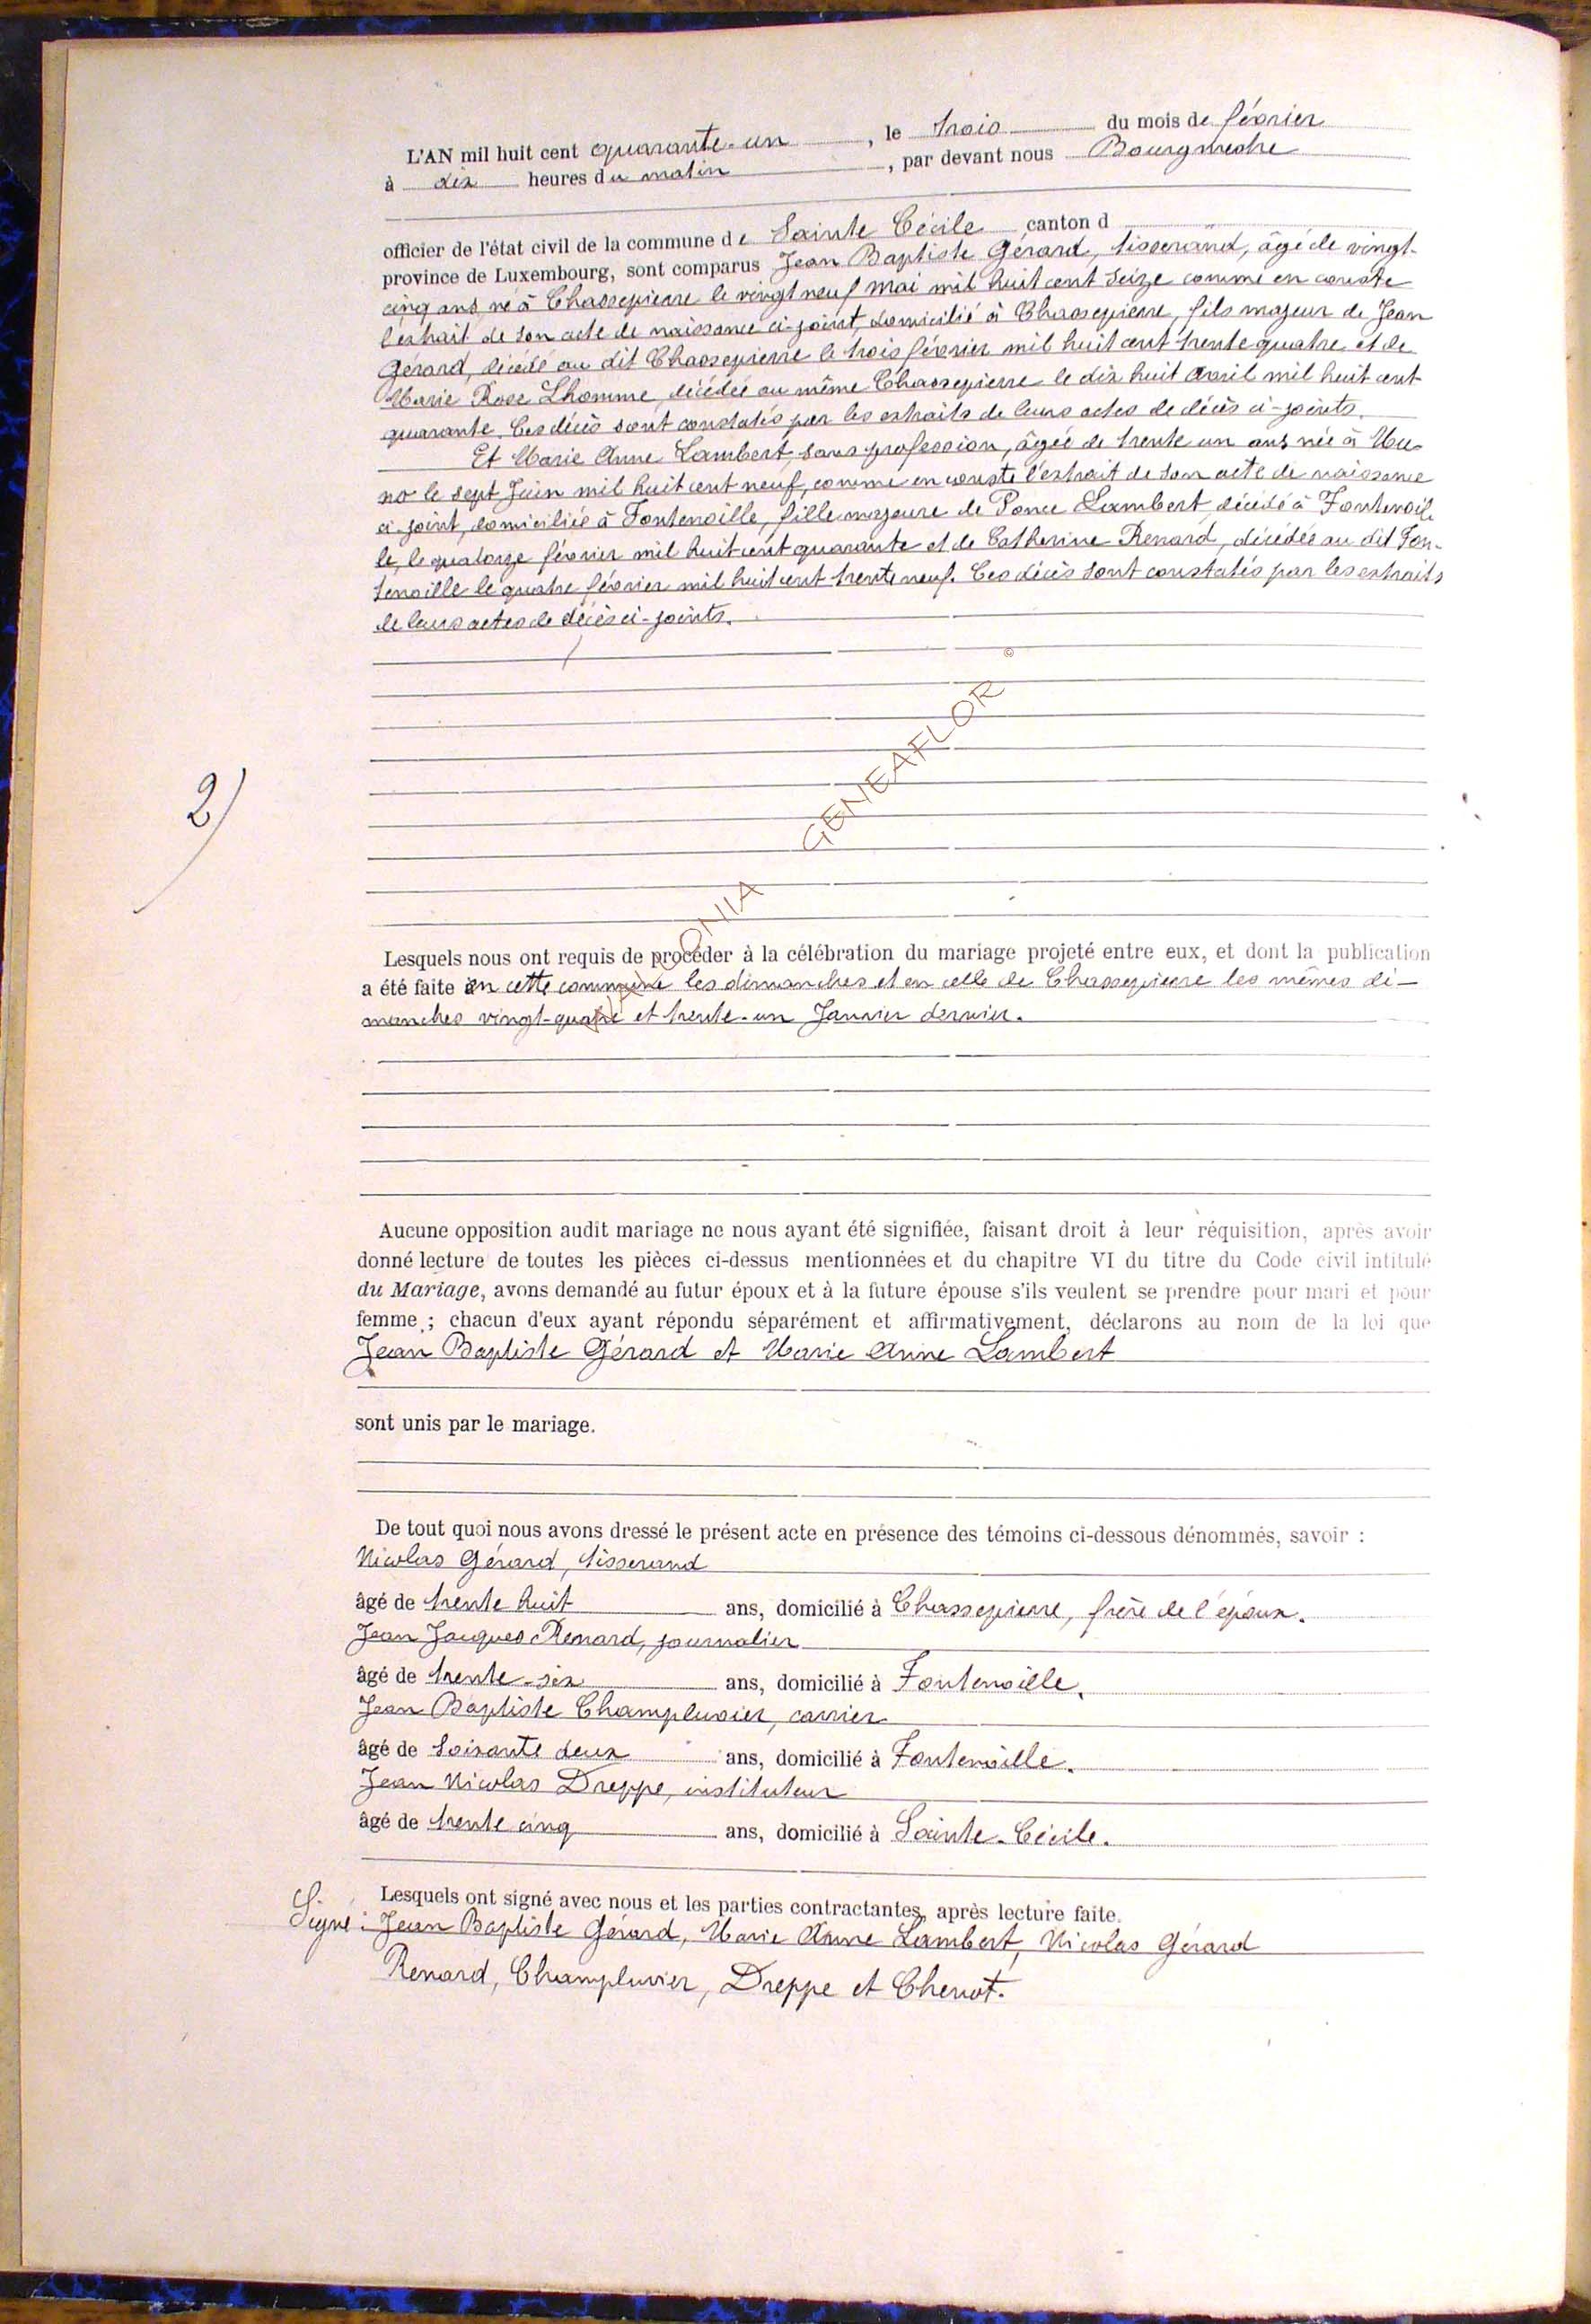 L'AN mil huit cent quarante-un, le trois du mois de février
à dix heures du matin, par devant nous Bourgmestre
officier de l'état civil de la commune de Sainte Cécile canton d
province de Luxembourg, sont comparus Jean Baptiste Gérard, tisserand, âgé de vingt-
cinq ans, né à Chassepierre le vingt neuf Mai mil huit cent seize comme en conste
l'extrait de son acte de naissance ci-joint, domicilié à Chassepierre, fils majeur de Jean
Gérard, décédé au dit Chassepierre le trois février mil huit cent trente quatre et de
Marie Rose Lhomme, décédée au même Chassepierre le dix huit Avril mil huit cent
quarante. Ces décès sont constatés par les extraits de leurs actes de décès ci-joints.
Et Marie Anne Lambert, sans profession, âgée de trente un ans née à Mu-
no le sept Juin mil huit cent neuf, comme en conste l'extrait de son acte de naissance
ci-joint, domiciliée à Fontenoille, fille majeure de Ponce Lambert, décédé à Fontenoil-
le, le quatorze février mil huit cent quarante et de Catherine Renard, décédée au dit Fon-
tenoille le quatre février mil huit cent trente neuf. Ces décès sont constatés par les extraits
de leurs actes de décès ci-joints.
©
GENEAFLOR
2)
Lesquels nous ont requis de procéder à la célébration du mariage projeté entre eux, et dont la publication
a été faite en cette commune les dimanches et en celle de Chassepierre les mêmes di-
manches vingt-quatre et trente-un Janvier dernier.
Aucune opposition audit mariage ne nous ayant été signifiée, faisant droit à leur réquisition, après avoir
donné lecture de toutes les pièces ci-dessus mentionnées et du chapitre VI du titre du Code civil intitulé
du Mariage, avons demandé au futur époux et à la future épouse s'ils veulent se prendre pour mari et pour
femme ; chacun d'eux ayant répondu séparément et affirmativement, déclarons au nom de la loi que
Jean Baptiste Gérard et Marie Anne Lambert
sont unis par le mariage.
De tout quoi nous avons dressé le présent acte en présence des témoins ci-dessous dénommés, savoir :
Nicolas Gérard, tisserand
âgé de trente huit ans, domicilié à Chassepierre, frère de l'époux.
Jean Jacques Renard, journalier
âgé de trente-six ans, domicilié à Fontenoille.
Jean Baptiste Champluvier, carrier
âgé de soixante deux ans, domicilié à Fontenoille.
Jean Nicolas Dreppe, instituteur
âgé de trente cinq ans, domicilié à Sainte-Cécile.
Lesquels ont signé avec nous et les parties contractantes, après lecture faite.
Signé : Jean Baptiste Gérard, Marie Anne Lambert, Nicolas Gérard
Renard, Champluvier, Dreppe et Chenot.